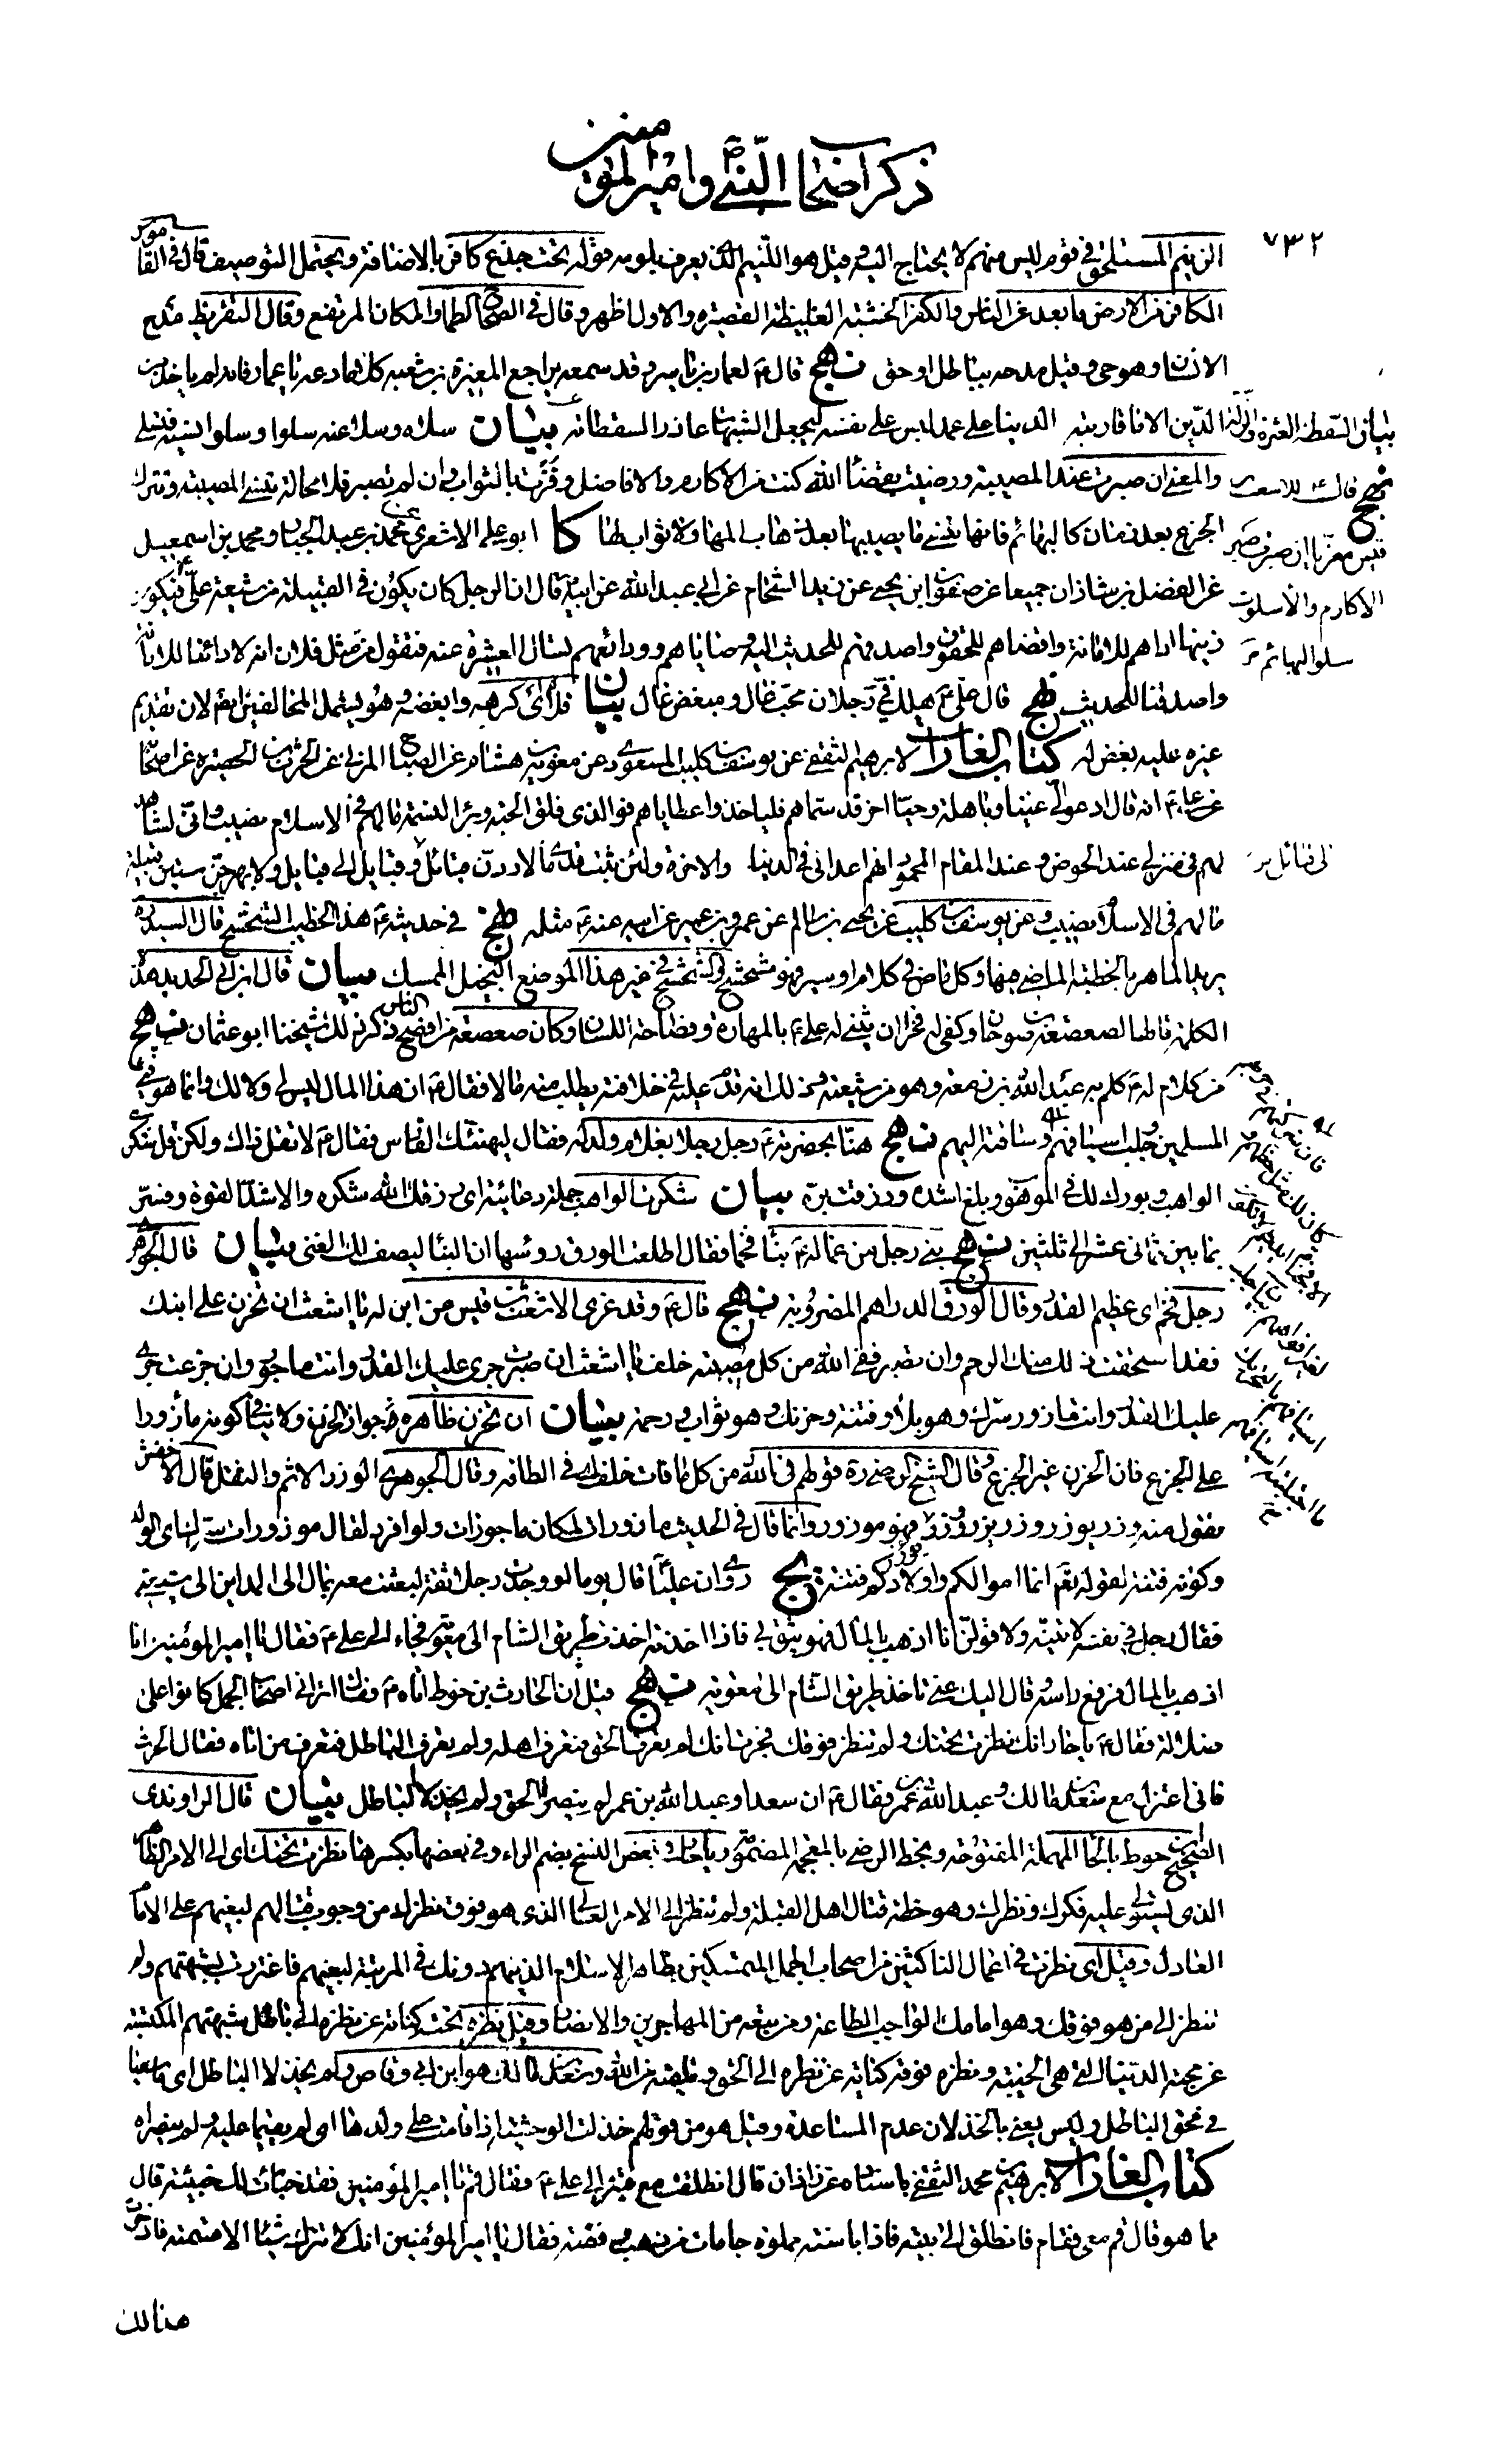 ذكر اصحاب النبي ص وامير المؤمنين
٧٣٢
الزنيم المستلحق في قوم ليس منهم لا يحتاج اليه وقيل هو اللئيم الذي يعرف بلومه قوله تحت جذع كافر بالاضافة ويحتمل التوصيف قال في القاموس
الكافر من الارض ما بعد عن الناس والكفر الخشبة الغليظة القصيرة والاول اظهر وقال في الصحاح الطماو المكان المرتفع وقال التقريظ مدح
الانسان وهو حي وقيل مدحه بباطل او حق نهج قال ع لعمار بن ياسر وقد سمعه يراجع المغيرة بن شعبة كلاما دعه يا عمار فانه لم ياخذ من
الدين الا ما قاربته الدنيا على عمد لبس على نفسه ليجعل الشبهات عاذرا لسقطاته بيان سلاه وسلا عنه سلوا وسلوا نسيه فتسلى
والمعنى ان صبرت عند المصيبة ورضيت بقضاء الله كنت من الاكارم والافاضل وفزت بالثواب وان لم تصبر فلا محالة تنسى المصيبة وتترك
الجزع بعد زمان كالبهائم فانها تنسى ما يصيبها بعد ذهاب المها ولا ثواب لها كا ابو علي الاشعري عن محمد بن عبد الجبار ومحمد بن اسمعيل
عن الفضل بن شاذان جميعا عن صفوان بن يحيى عن زيد الشحام عن ابي عبد الله عن ابيه ع قال ان الرجل كان يكون في القبيلة من شيعة علي فيكون
زينها اداهم للامانة واقضاهم للحقوق واصدقهم للحديث اليه وصاياهم وودائعهم تسال العشيرة عنه فتقول من مثل فلان انه لادانا للامانة
واصدقنا للحديث نهج قال علي ع هلك في رجلان محب غال ومبغض قال بيان قلاه اي كرهه وابغضه وهو يشمل المخالفين ايضا لان تقديم
غيره عليه بغض له كتاب الغارات لابرهيم الثقفي عن يوسف بن كليب المسعودي عن معوية بن هشام عن الصباح المزني عن الحرث بن الحصيرة عن اصحابه
عن علي ع انه قال ادعوا لي غنيا وباهلة وحيا اخر قد سماهم فلياخذوا عطاياهم فو الذي فلق الحبة وبرا النسمة ما لهم في الاسلام نصيب واني لشاهد
لهم في منزلي عند الحوض وعند المقام المحمود انهم اعدائي في الدنيا والاخرة ولئن ثبتت قدماي لاردن قبائل الى قبايل وقبايل الى قبايل ولابهرجن ستين قبيلة
ما لهم في الاسلام نصيب وعن يوسف بن كليب عن يحيى بن سالم عن عمرو بن عمير عن ابيه عنه ع مثله نهج في حديثه ع هذا الخطيب الشحشح قال السيد ره
يريد الماهر بالخطبة الماضي فيها وكل ماض في كلام او سير فهو شحشح والشحشح في غير هذا الموضع البخيل الممسك بيان قال ابن ابي الحديد هذه
الكلمة قالها لصعصعة بن صوحان وكفى له فخرا ان يثني له علي ع بالمهارة وفصاحة اللسان وكان صعصعة من افصح الناس ذكر ذلك شيخنا ابو عثمان نهج
من كلام له ع كلم به عبد الله بن زمعة وهو من شيعته وذلك انه قدم عليه في خلافته يطلب منه مالا فقال ع ان هذا المال ليس لي ولا لك وانما هو فيء
المسلمين وجلب اسيافهم وسافته اليهم نهج هنا بحضرته ع رجل رجلا بغلام ولد له فقال ليهنئك الفارس فقال ع لا تقل ذاك ولكن قل شكرت
الواهب وبورك لك في الموهوب وبلغ اشده ورزقت بره بيان شكرت الواهب جملة دعائية اي رزقك الله شكره والاشد القوة وفسر
بما بين ثماني عشر الى ثلثين نهج بنى رجل من عماله ع بناء فخما فقال اطلعت الورق رؤسها ان البناء ليصف لك الغنى بيان قال الجوهري
رجل فخم اي عظيم القدر وقال الورق الدراهم المضروبة نهج قال ع وقد عزى الاشعث بن قيس عن ابن له يا اشعث ان تحزن على ابنك
فقد استحقت ذلك منك الرحم وان تصبر ففي الله من كل مصيبة خلف يا اشعث ان صبرت جرى عليك القدر وانت ماجور وان جزعت جرى
عليك القدر وانت مازور سرك وهو بلاء وفتنة وحزنك وهو ثواب ورحمة بيان ان تحزن ظاهره جواز الحزن ولا ينافي كونه مازورا
على الجزع فان الحزن غير الجزع وقال الشيخ الرضي ره قولهم في الله من كل ما فات خلف اي في الطافه وقال الجوهري الوزر الاثم والثقل قال الاخفش
مقول منه وزر يوزر ووزر يزر ووزر يوزر فهو موزور وانما قال في الحديث مازورات لمكان ماجورات ولو افرد لقال موزورات سرك اي الولد
وكونه فتنة لقوله تعم انما اموالكم واولادكم فتنة يج روي ان عليا قال يوما لو وجدت رجل ثقة لبعثت معه بمال الى المداين الى شيعته
فقال رجل في نفسه لاتينه ولاقولن انا اذهب بالمال فهو يثق بي فاذا اخذته اخذت طريق الشام الى معوية فجاء الى علي ع فقال يا امير المؤمنين انا
اذهب بالمال فرفع راسه قال اليك عني تاخذ طريق الشام الى معوية نهج قيل ان الحارث بن حوط اتاه ع فقال اتراني اصحاب الجمل كانوا على
ضلالة فقال ع يا حار انك نظرت تحتك ولم تنظر فوقك فحرت انك لم تعرف الحق فتعرف اهله ولم تعرف الباطل فتعرف من اتاه فقال الحرث
فاني اعتزل مع سعد بن مالك وعبد الله بن عمر فقال ع ان سعدا وعبد الله بن عمر لم ينصرا الحق ولم يخذلا الباطل بيان قال الراوندي
الصحيح حوط بالحاء المهملة المفتوحة وبخط الرضي بالمعجمة المضمومة ويا حار في بعض النسخ بضم الراء وفي بعضها بكسرها نظرت تحتك اي الى الامر الظاهر
الذي يستولي عليه فكرك ونظرك وهو خطر قتال اهل القبلة ولم تنظر الى الامر العالي الذي هو فوق نظرك من وجوب قتالهم لبغيهم على الامام
العادل وقيل اي نظرت في اعمال الناكثين من اصحاب الجمل المتمسكين بظاهر الاسلام الذين هم دونك في المرتبة لبغيهم فاغتررت بشبهتهم ولم
تنظر الى من هو فوقك وهو امامك الواجب الطاعة ومن تبعه من المهاجرين والانصار وقيل نظره تحته كناية عن نظره الى باطل شبهتهم المكتسبة
عن محبة الدنيا التي هي الجنبة ونظره فوقه كناية عن نظره الى الحق وتلقيه من الله وسعد بن مالك هو ابن ابي وقاص ولم يخذلا الباطل اي ما سعيا
في محق الباطل وليس يعني بالخذلان عدم المساعدة وقيل هو من قولهم خذلت الوحشية اذا قامت على ولدها اي لم يقيما عليه ولم ينصراه
كتاب الغارات لابرهيم بن محمد الثقفي باسناده عن زاذان قال انطلقت مع قنبر الى علي ع فقال قم يا امير المؤمنين فقد خبات لك خبيئة قال
فما هو قال قم معي فقام فانطلق الى بيته فاذا باسنة مملوة جامات من ذهب وفضة فقال يا امير المؤمنين انك لا تترك شيئا الا قسمته فادخرت
هذا لك
بيان السقطة العثرة والزلة
نهج قال ع للاشعث بن
قيس معزيا ان صبرت صبر
الاكارم والا سلوت
سلو البهائم